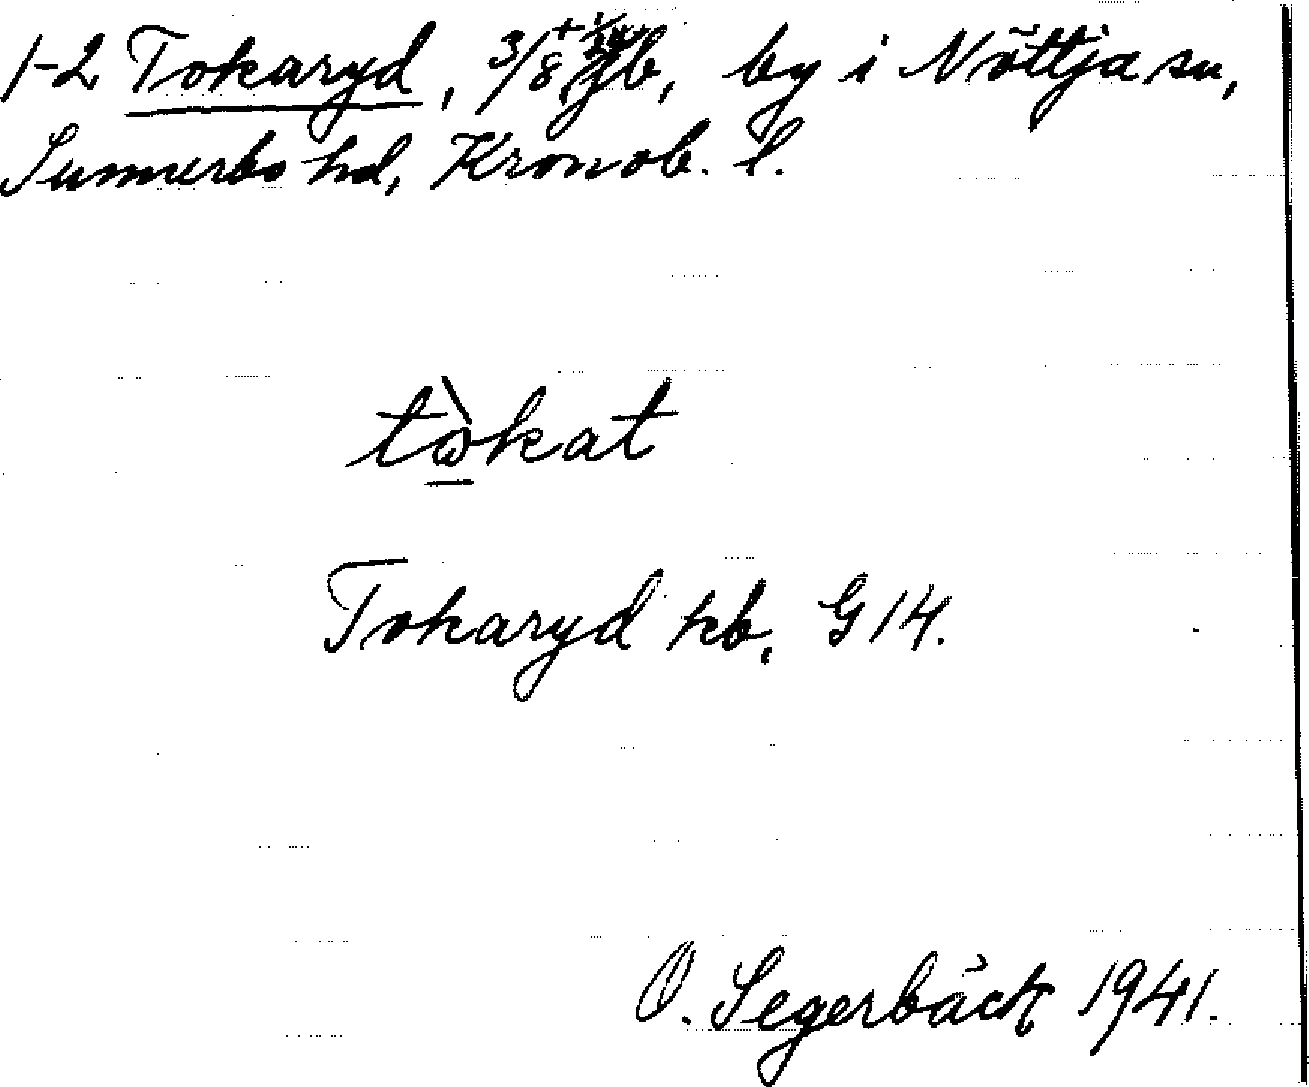 1-2 Tokaryd, 3/8 gb, by i Nöttja sn,
Sunnerbo hd, Kronob. l.
tòkat
Tokaryd kb. G 14.
O. Segerbäck 1941.